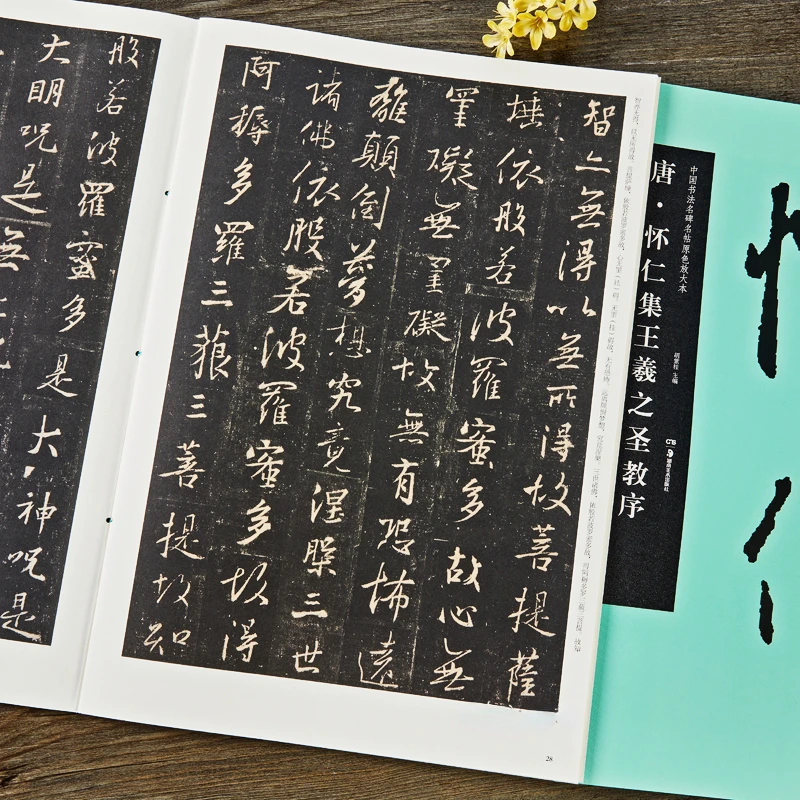 中国书法名碑名帖原色放大本
唐·怀仁集王羲之圣教序
胡紫桂 主编
湖南美术出版社
智亦無得以無所得故菩提薩
埵依般若波羅蜜多故心無
罣礙無罣礙故無有恐怖遠
離顛倒夢想究竟涅槃三世
諸佛依般若波羅蜜多故得
阿耨多羅三藐三菩提故知
般若波羅蜜多是大神咒是
大明咒是無上咒
28